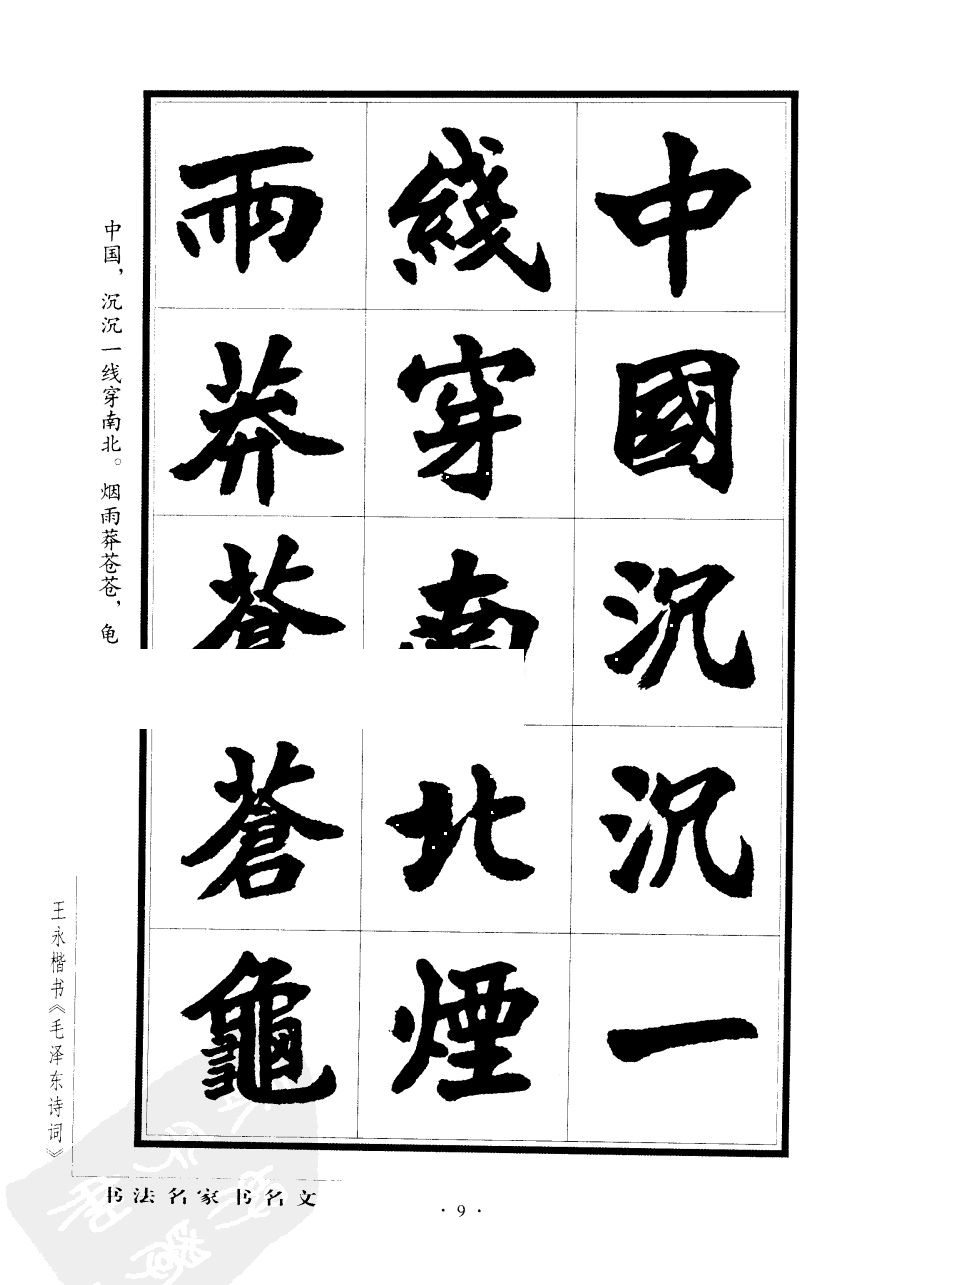 中國沉沉一
綫穿南北煙
雨莽蒼蒼龜
中国，沉沉一线穿南北。烟雨莽苍苍，龟
王永楷书《毛泽东诗词》
书法名家书名文
·9·